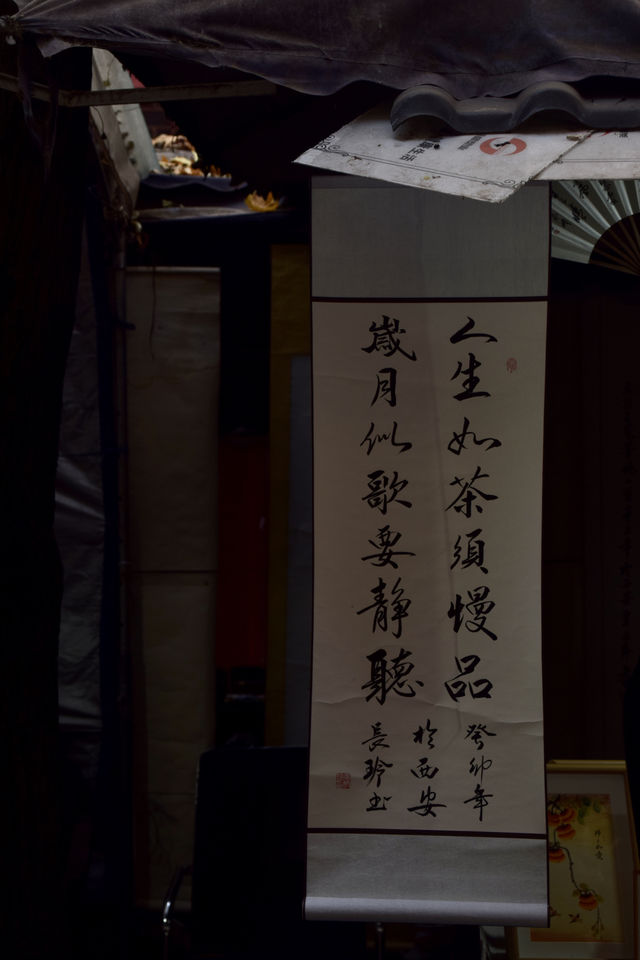 人生如茶須慢品
歲月似歌要靜聽
癸卯年
於西安
長玲书